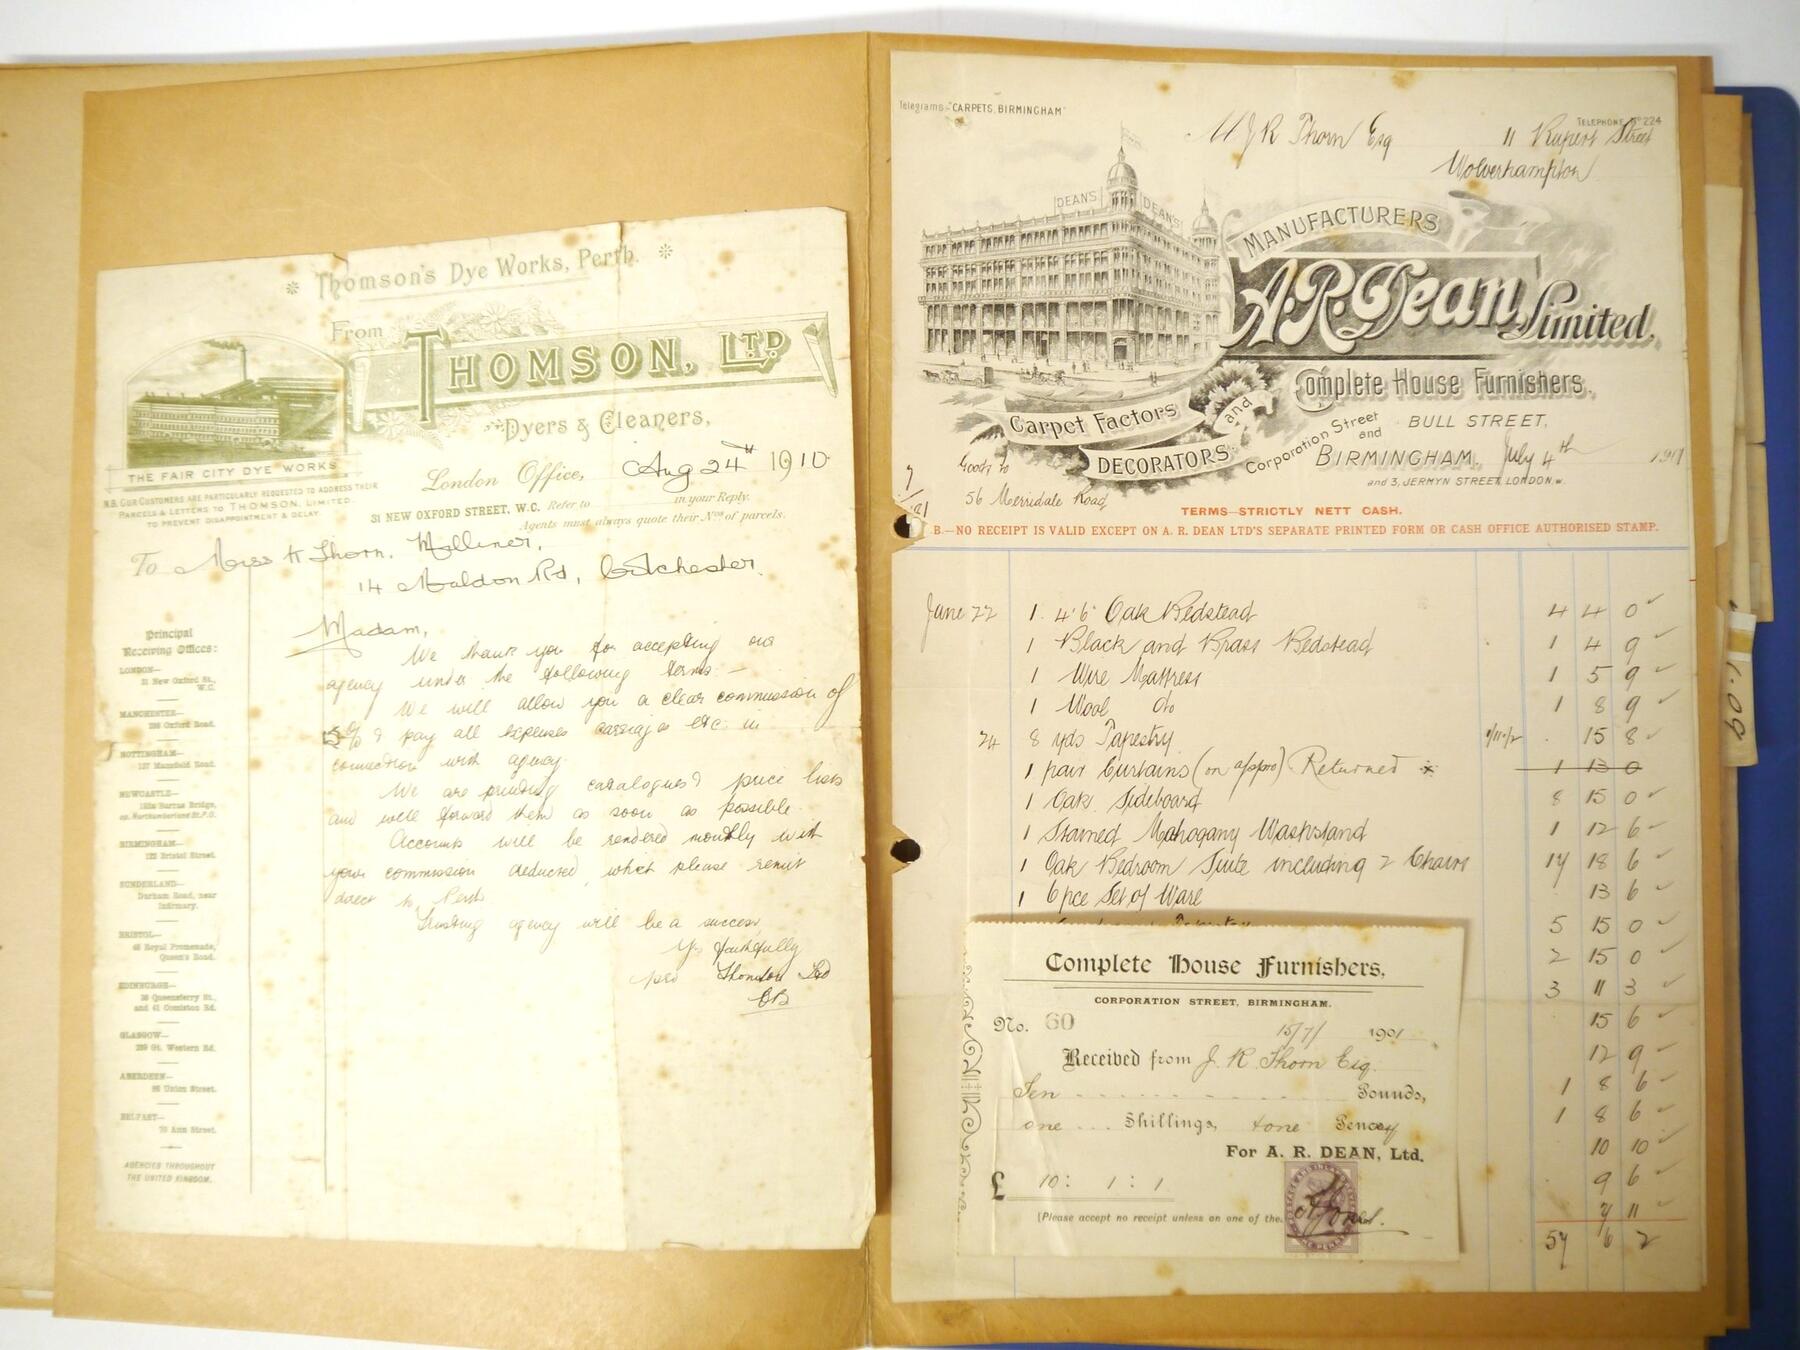 Thomson's Dye Works, Perth.
From
THOMSON, LTD
Dyers & Cleaners,
THE FAIR CITY DYE WORKS
N.B. OUR CUSTOMERS ARE PARTICULARLY REQUESTED TO ADDRESS THEIR
PARCELS & LETTERS TO THOMSON, LIMITED.
TO PREVENT DISAPPOINTMENT & DELAY.
London Office, Aug 24th 1910
31 NEW OXFORD STREET, W.C. Refer to in your Reply.
Agents must always quote their Nos of parcels.
To Miss H Thorn, Milliner,
14 Maldon Rd, Colchester.
Principal
Receiving Offices:
LONDON—
31 New Oxford St.,
W.C.
MANCHESTER—
Oxford Road.
NOTTINGHAM—
137 Mansfield Road.
NEWCASTLE—
Barras Bridge,
op. Northumberland St. P.O.
BIRMINGHAM—
Bristol Street.
SUNDERLAND—
Durham Road, near
Infirmary.
BRISTOL—
48 Royal Promenade,
Queen's Road.
EDINBURGH—
Queensferry St.,
and 41 Comiston Rd.
GLASGOW—
Gt. Western Rd.
ABERDEEN—
Union Street.
BELFAST—
70 Ann Street.
AGENCIES THROUGHOUT
THE UNITED KINGDOM.
Madam,
We thank you for accepting our
agency under the following terms —
We will allow you a clear commission of
% & pay all expenses carriages etc. in
connection with agency.
We are printing catalogues & price lists
and will forward them as soon as possible.
Accounts will be rendered monthly with
your commission deducted, which please remit
direct to Perth.
Trusting agency will be a success,
Yrs faithfully
pro Thomson Ltd
Telegrams:- "CARPETS, BIRMINGHAM"
TELEPHONE No 224
J R Thorn Esq 11 Rupert Street
Wolverhampton
DEAN'S DEAN'S
MANUFACTURERS
A.R. Dean Limited.
Complete House Furnishers.
Carpet Factors
and
DECORATORS
Corporation Street
and
BULL STREET,
BIRMINGHAM, July 4th 1901
and 3, JERMYN STREET, LONDON, W.
Goods to
56 Merridale Road
TERMS—STRICTLY NETT CASH.
B.—NO RECEIPT IS VALID EXCEPT ON A. R. DEAN LTD'S SEPARATE PRINTED FORM OR CASH OFFICE AUTHORISED STAMP.
June 22 1 4'6" Oak Bedstead 4 4 0
1 Black and Brass Bedstead 1 4 9
1 Wire Mattress 1 5 9
1 Wool Do 1 8 9
24 8 yds Tapestry 1/11½ 15 8
1 pair Curtains (on appro) Returned 1 13 0
1 Oak Sideboard 8 15 0
1 Stained Mahogany Washstand 1 12 6
1 Oak Bedroom Suite including 2 Chairs 17 18 6
1 6 pce Set of Ware 13 6
5 15 0
2 15 0
3 11 3
15 6
12 9
1 8 6
1 8 6
10 10
9 6
7 11
57 6 2
Complete House Furnishers,
CORPORATION STREET, BIRMINGHAM.
No. 60 15/7/ 1901
Received from J. R. Thorn Esq.
Ten Pounds,
one Shillings, & one Pency
For A. R. DEAN, Ltd.
£ 10 : 1 : 1
[Please accept no receipt unless on one of the
1.09